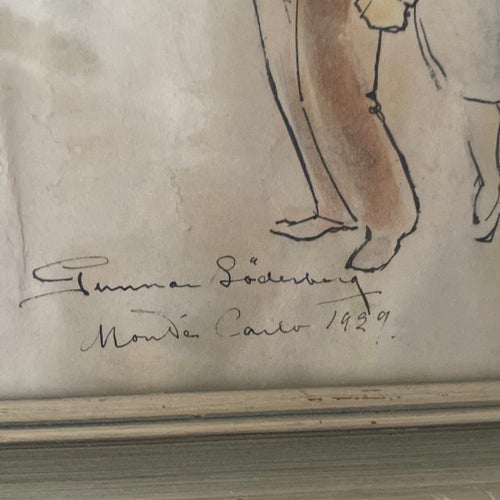 Gunnar Söderberg
Monde Carlo 1929.